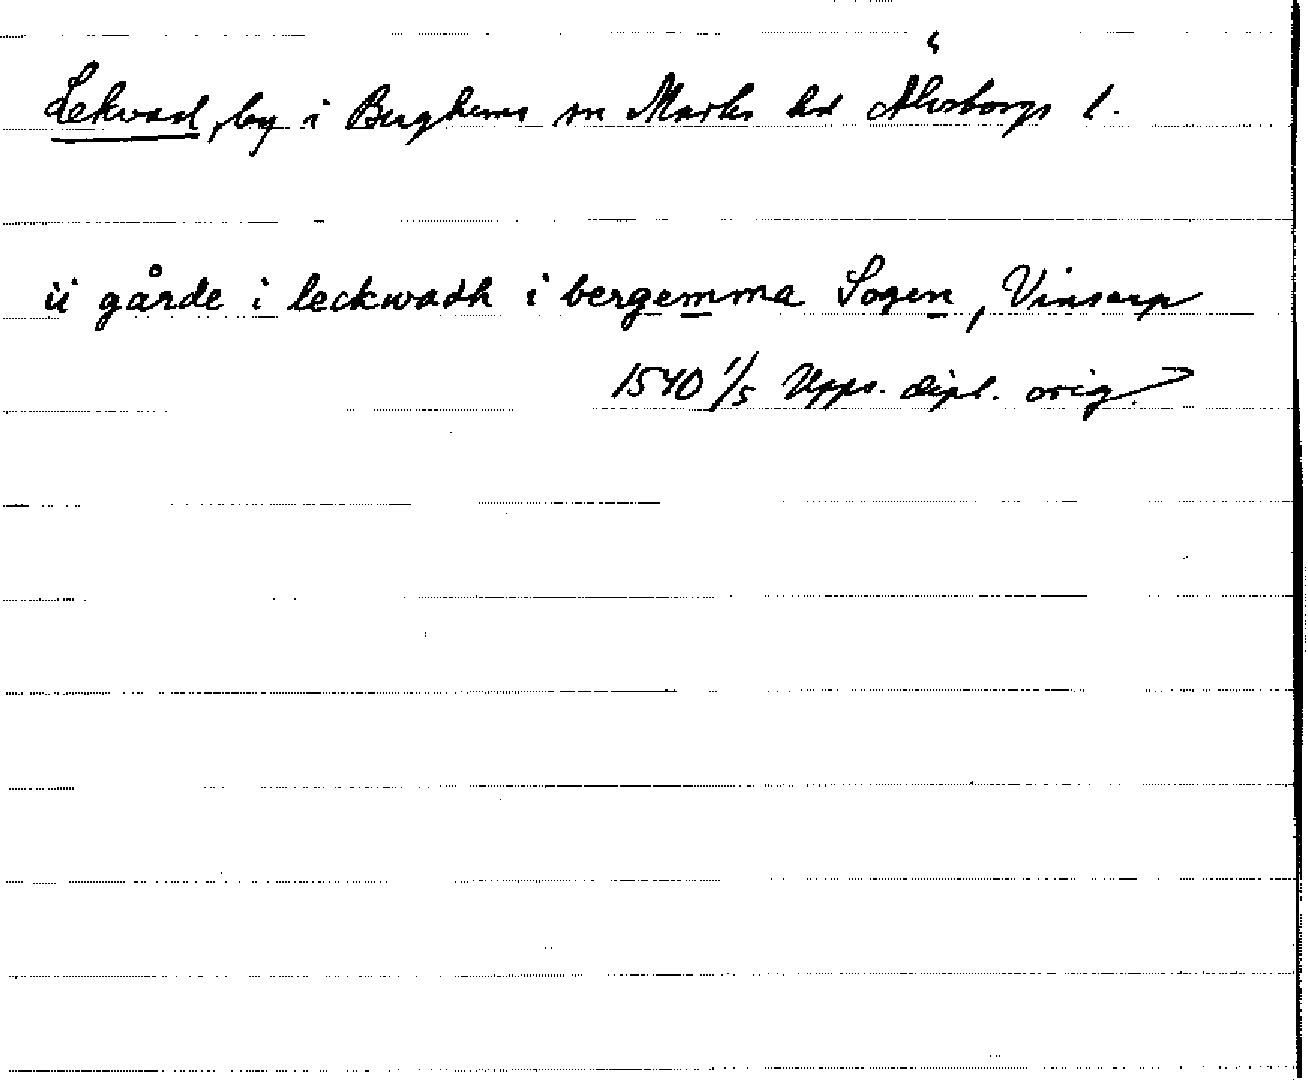 Lekvad, by i Berghems sn Marks hd Älvsborgs l.
ii gårde i leckwadh i bergemma Sogen, Vinsarp
1540 1/5 Upps. dipl. orig.